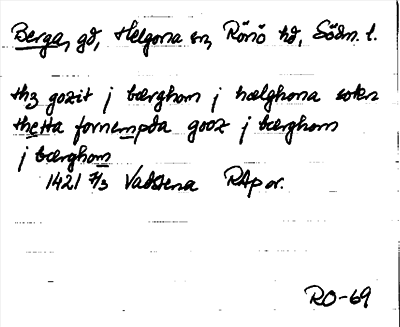 Berga, gd, Helgona sn, Rönö hd, Södm. l.
thʒ gozit j bærghom j hælghona sokn
thetta fornempda gooz j bærghom
j bærghom
1421 7/3 Vadstena RAp or.
RO-69